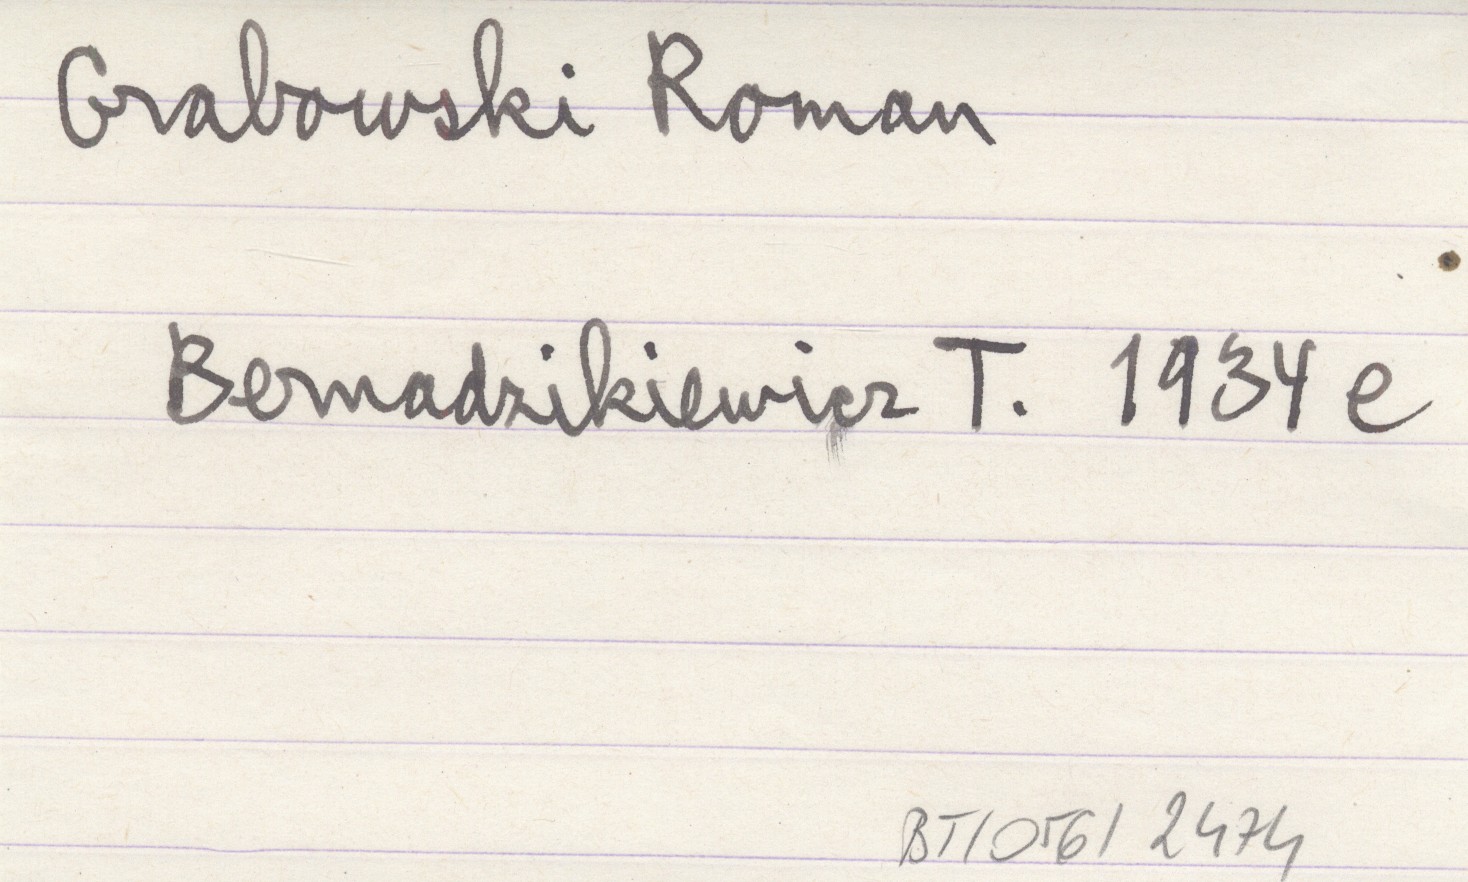 Grabowski Roman
Bernadzikiewicz T. 1934 e
BT/056/2474